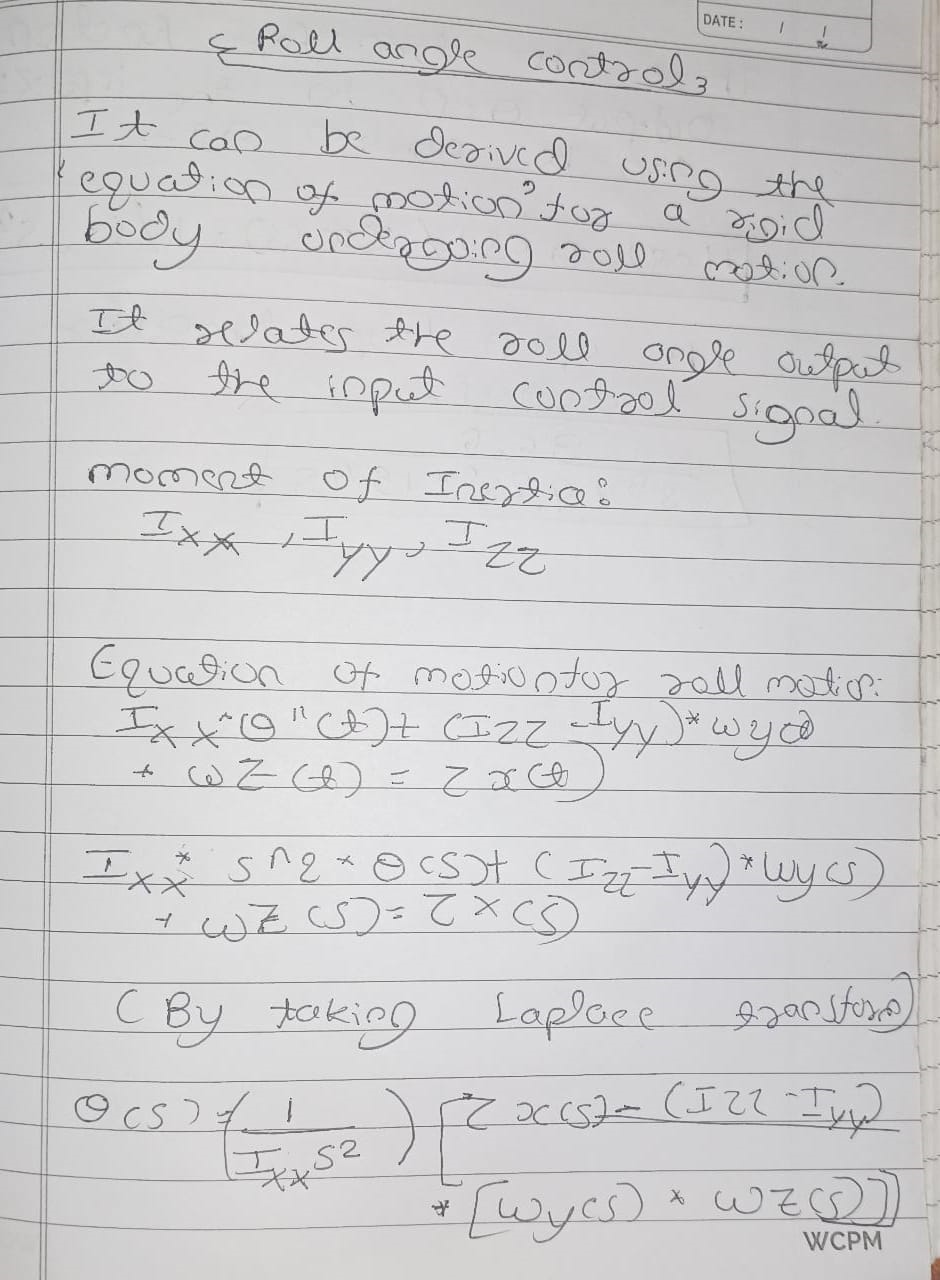 DATE: / /
Roll angle control
It can be derived using the
equation of motion for a rigid
body undergoing roll motion.
It relates the roll angle output
to the input control signal.
moment of Inertia:
Ixx, Iyy, Izz
Equation of motion for roll motion:
Ixx*θ''(t)+ (Izz-Iyy)*wy(t)
* wz(t) = τx(t)
Ixx* s^2*θ(s)+ (Izz-Iyy)*wy(s)
* wz(s)=τx(s)
(By taking Laplace transform)
θ(s) = (1/Ixx s²) [τx(s) - (Izz-Iyy)
* [wy(s) * wz(s)]]
WCPM